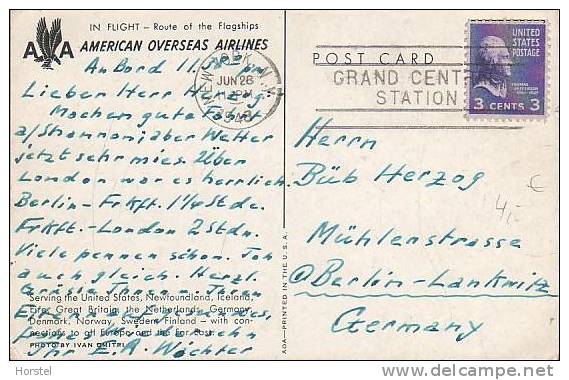 IN FLIGHT – Route of the Flagships
AA AMERICAN OVERSEAS AIRLINES
POST CARD
UNITED STATES POSTAGE
THOMAS JEFFERSON
3 CENTS 3
NEW YORK, N.Y.
JUN 28
PM
1948
GRAND CENTRAL
STATION
An Bord 11.
Lieber Herr Herzog!
Machen gute Fahrt
a/Shannon, aber Wetter
jetzt sehr mies. Über
London war es herrlich.
Berlin-Frkft. 1¼ Stde.
Frkft.-London 2 Stdn.
Viele pennen schon. Ich
auch gleich. Herzl.
Grüsse Ihnen u. Ihrer
Wiedersehn
Ihr E.A. Wächter
Serving the United States, Newfoundland, Iceland,
Eire, Great Britain, the Netherlands, Germany,
Denmark, Norway, Sweden, Finland — with con-
nections to all Europe and the Far East.
PHOTO BY IVAN DMITRI
AOA—PRINTED IN THE U.S.A.
Herrn
Büb Herzog
Mühlenstrasse
Berlin-Lankwitz
Germany
€
4,-
Horstel
delcampe.net